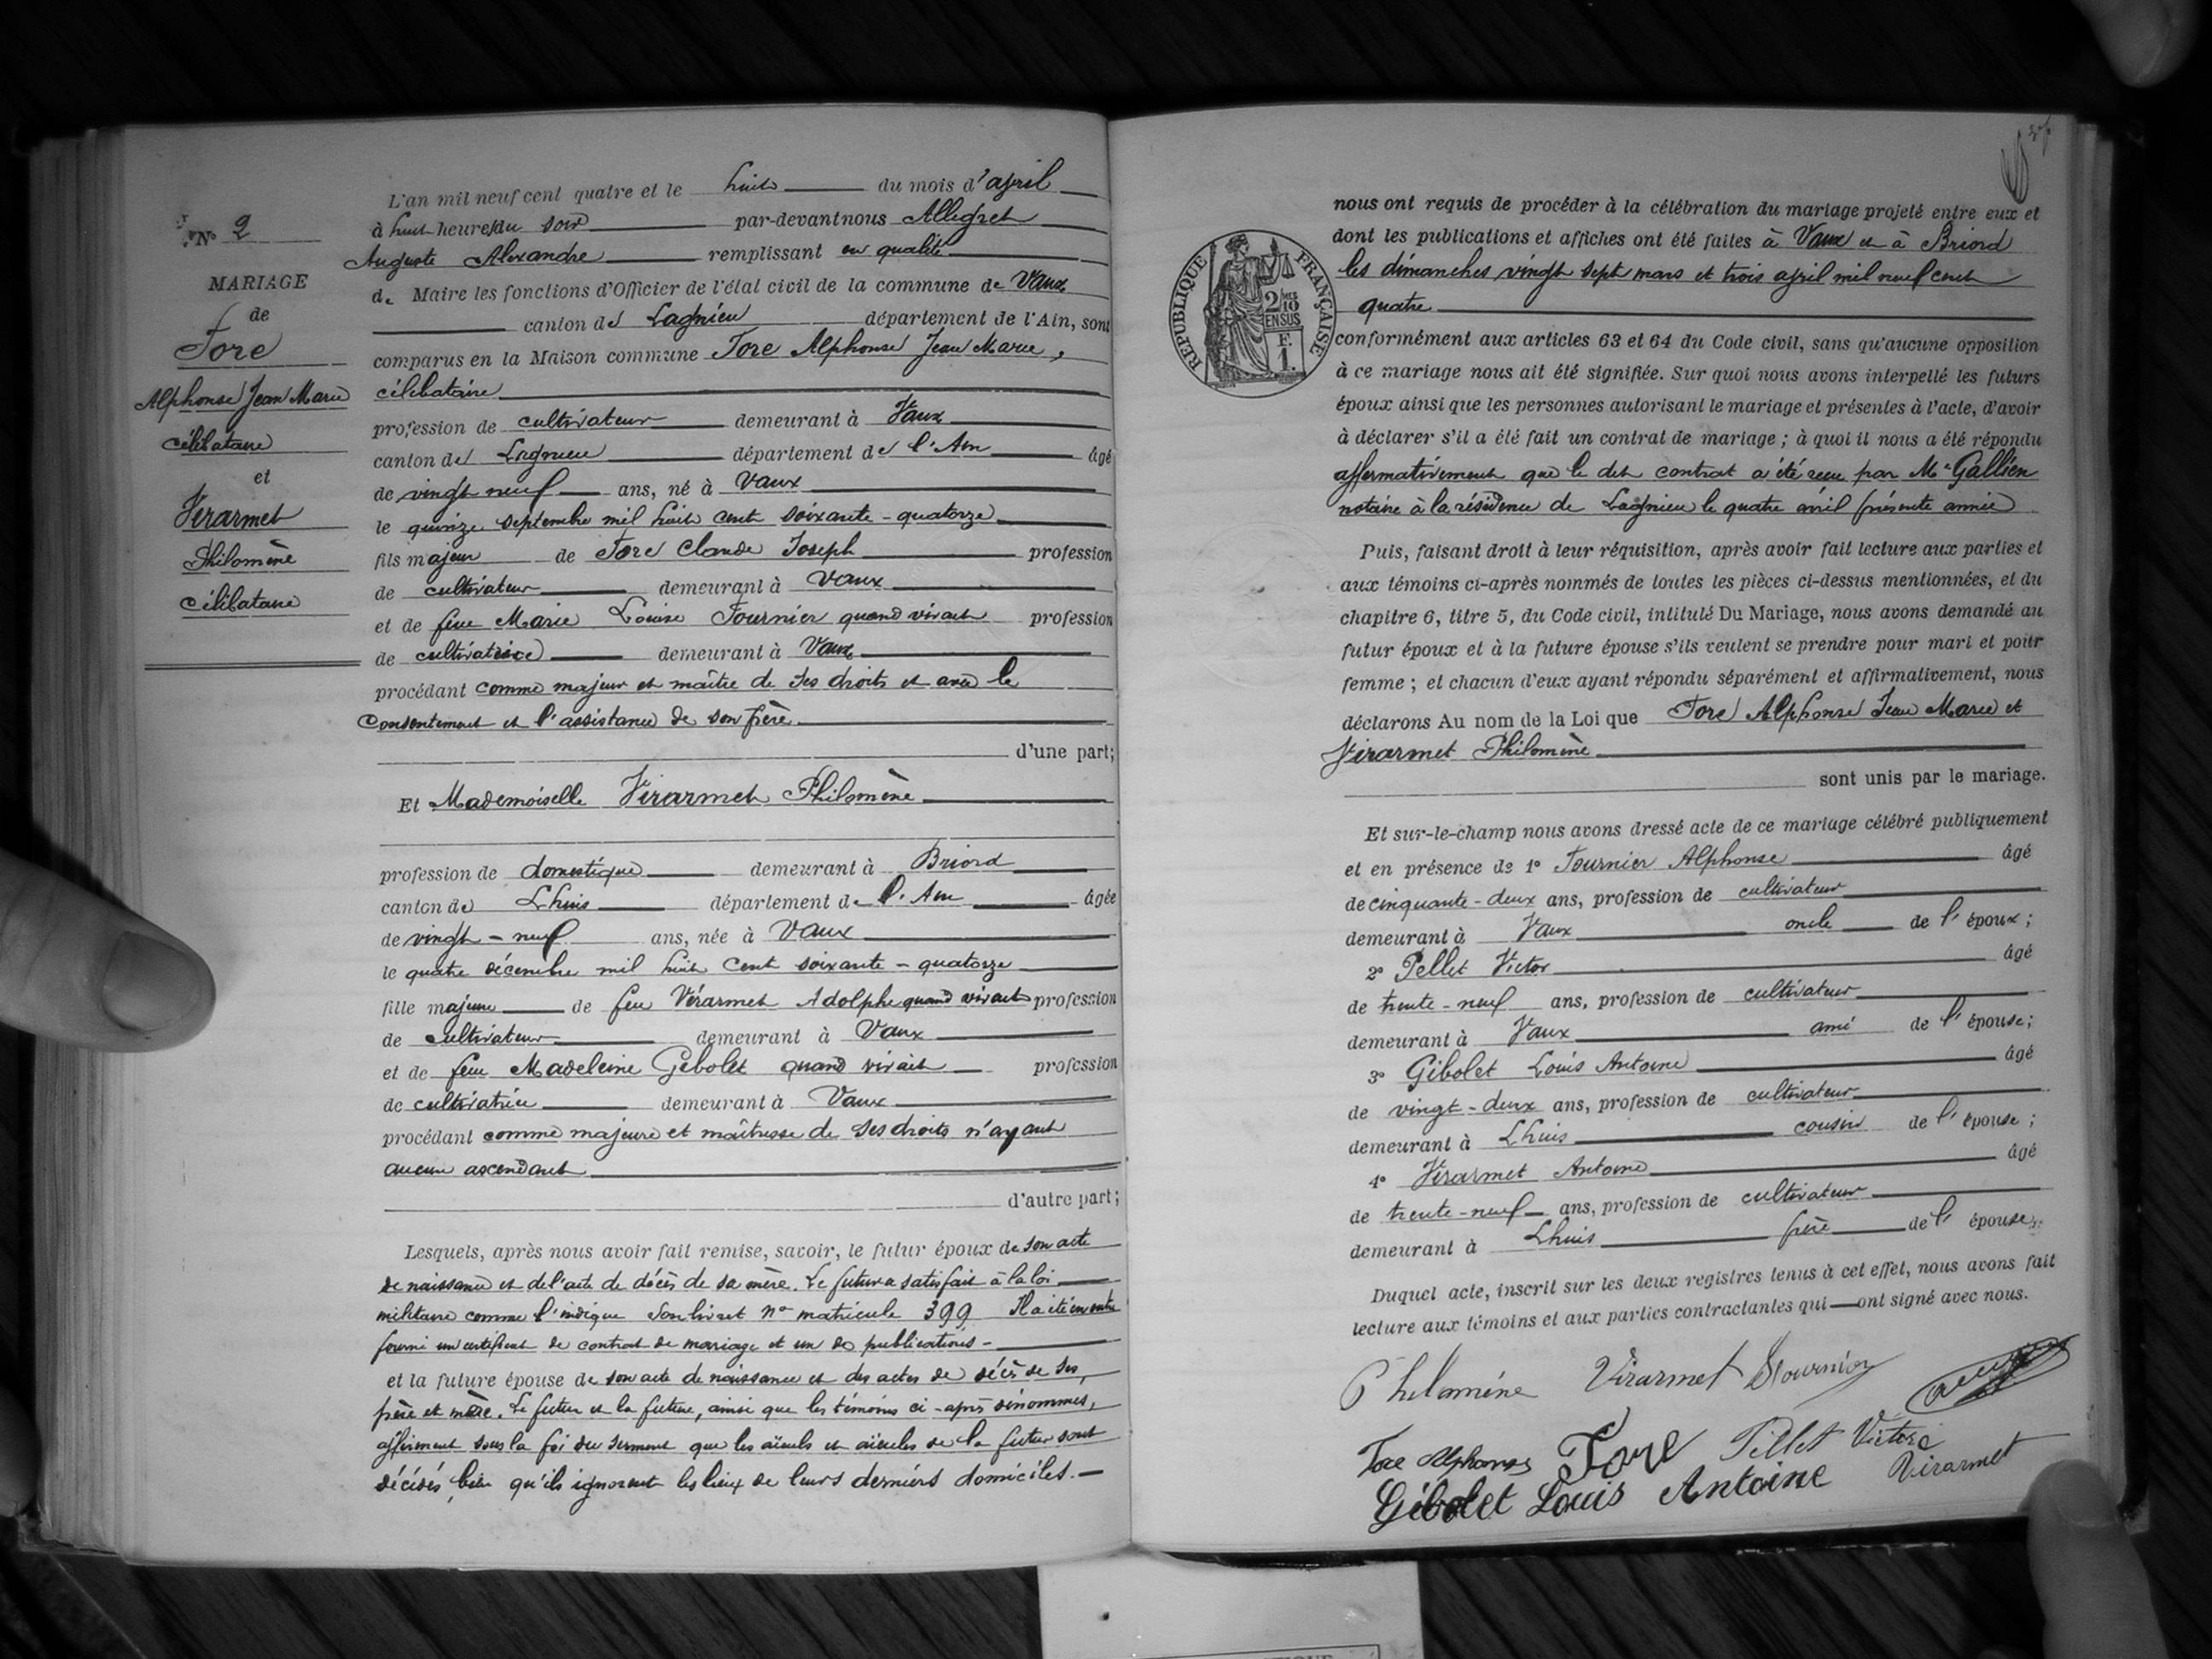 N° 2
MARIAGE
de
Fore
Alphonse Jean Marie
célibataire
et
Virarmet
Philomène
Célibataire
L'an mil neuf cent quatre et le huit du mois d'april
à huit heures du soir par-devant nous Allegret
Auguste Alexandre remplissant en qualité
de Maire les fonctions d'Officier de l'état civil de la commune de Vaux
canton de Lagnieu département de l'Ain, sont
comparus en la Maison commune Fore Alphonse Jean Marie,
célibataire
profession de cultivateur demeurant à Vaux
canton de Lagnieu département de l'Ain âgé
de vingt neuf ans, né à Vaux
le quinze septembre mil huit cent soixante-quatorze
fils majeur de Fore Claude Joseph profession
de cultivateur demeurant à Vaux
et de feue Marie Louise Fournier quand vivait profession
de cultivatrice demeurant à Vaux
procédant comme majeur et maître de ses droits et avec le
consentement et l'assistance de son père
d'une part;
Et Mademoiselle Virarmet Philomène
profession de domestique demeurant à Briord
canton de Lhuis département de l'Ain âgée
de vingt-neuf ans, née à Vaux
le quatre décembre mil huit cent soixante-quatorze
fille majeure de feu Vérarmet Adolphe quand vivait profession
de cultivateur demeurant à Vaux
et de feue Madeleine Gebolet quand vivait profession
de cultivatrice demeurant à Vaux
procédant comme majeure et maîtresse de ses droits n'ayant
aucun ascendant
d'autre part;
Lesquels, après nous avoir fait remise, savoir, le futur époux de son acte
de naissance et de l'acte de décès de sa mère. Le futur a satisfait à la loi
militaire comme l'indique son livret n° matricule 399 Il a été en outre
fourni un certificat de contrat de mariage et un de publications -
et la future épouse de son acte de naissance et des actes de décès de ses,
père et mère. Le futur et la future, ainsi que les témoins ci-après dénommés,
affirment sous la foi du serment que les aïeuls et aïeules de la future sont
décédés, bien qu'ils ignorent les lieux de leurs derniers domiciles.-
REPUBLIQUE FRANÇAISE
2/10 MES
EN SUS
F.
1.
nous ont requis de procéder à la célébration du mariage projeté entre eux et
dont les publications et affiches ont été faites à Vaux et à Briord
les dimanches vingt sept mars et trois april mil neuf cent
quatre
conformément aux articles 63 et 64 du Code civil, sans qu'aucune opposition
à ce mariage nous ait été signifiée. Sur quoi nous avons interpellé les futurs
époux ainsi que les personnes autorisant le mariage et présentes à l'acte, d'avoir
à déclarer s'il a été fait un contrat de mariage ; à quoi il nous a été répondu
affirmativement que le dit contrat a été reçu par Me Gallien
notaire à la résidence de Lagnieu le quatre avril présente année
Puis, faisant droit à leur réquisition, après avoir fait lecture aux parties et
aux témoins ci-après nommés de toutes les pièces ci-dessus mentionnées, et du
chapitre 6, titre 5, du Code civil, intitulé Du Mariage, nous avons demandé au
futur époux et à la future épouse s'ils veulent se prendre pour mari et pour
femme ; et chacun d'eux ayant répondu séparément et affirmativement, nous
déclarons Au nom de la Loi que Fore Alphonse Jean Marie et
Virarmet Philomène
sont unis par le mariage.
Et sur-le-champ nous avons dressé acte de ce mariage célébré publiquement
et en présence de 1° Fournier Alphonse âgé
de cinquante-deux ans, profession de cultivateur
demeurant à Vaux oncle de l'époux ;
2° Pellet Victor âgé
de trente-neuf ans, profession de cultivateur
demeurant à Vaux ami de l'épouse;
3° Gibolet Louis Antoine âgé
de vingt-deux ans, profession de cultivateur
demeurant à Lhuis cousin de l'épouse ;
4° Virarmet Antoine âgé
de trente-neuf ans, profession de cultivateur
demeurant à Lhuis frère de l'épouse.
Duquel acte, inscrit sur les deux registres tenus à cet effet, nous avons fait
lecture aux témoins et aux parties contractantes qui ont signé avec nous.
Philomène Virarmet Fournier
Fore Alphonse Fore Pellet Victor
Gibolet Louis Antoine Virarmet